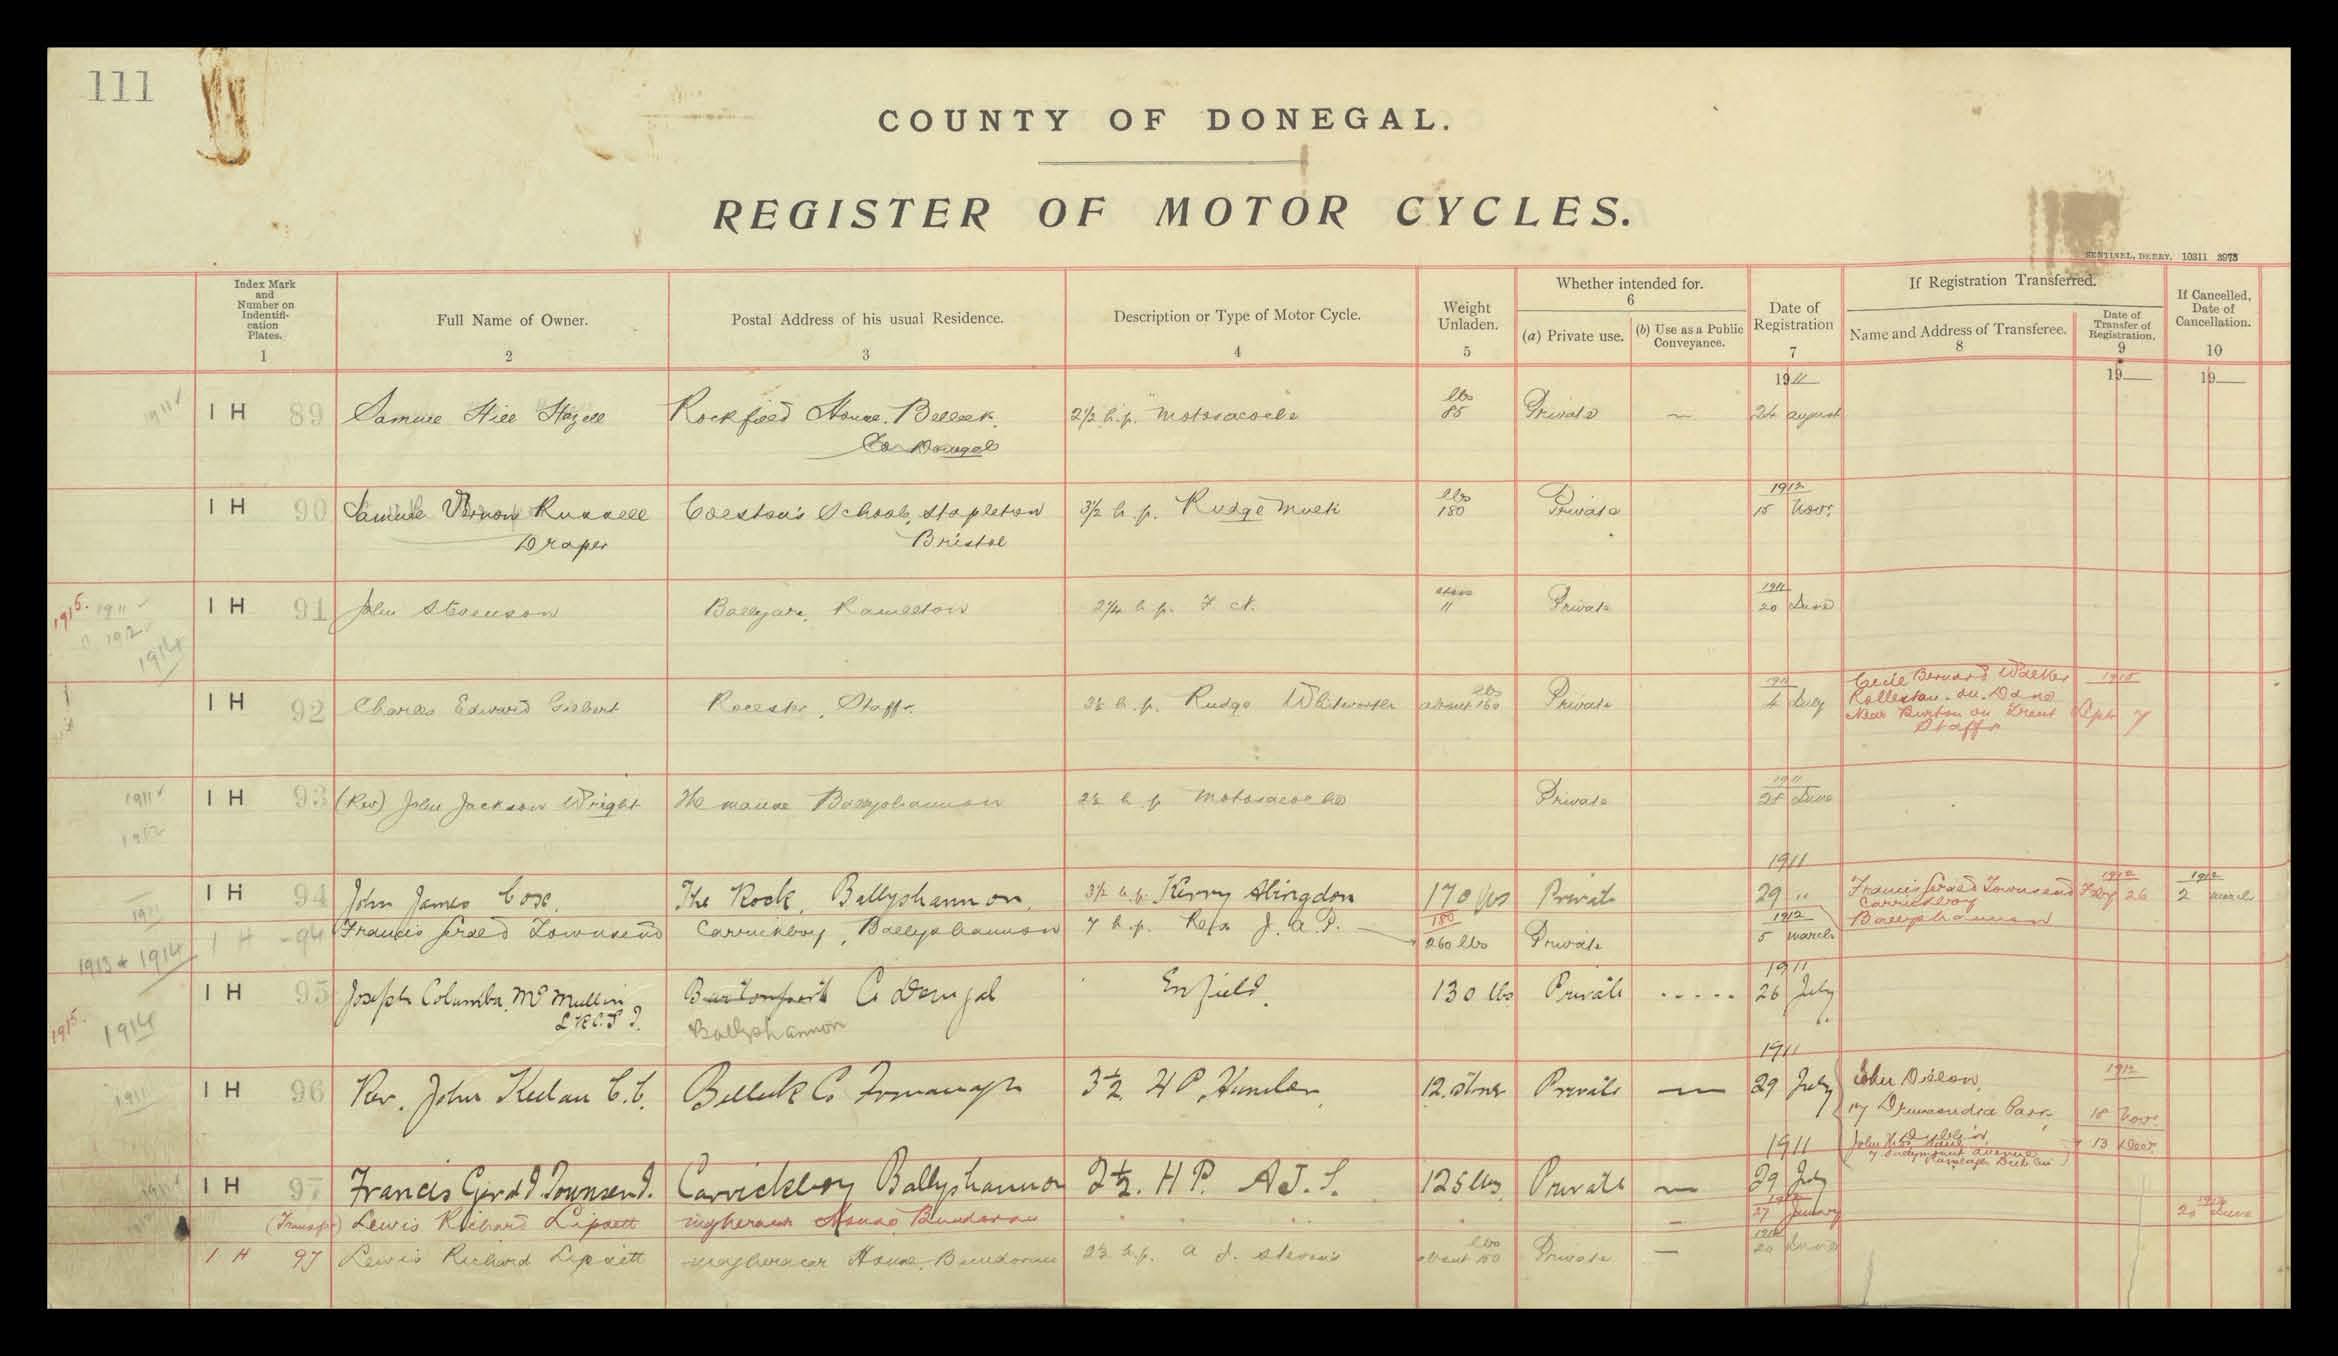 111
COUNTY OF DONEGAL.
REGISTER OF MOTOR CYCLES.
SENTINEL, DERRY, 10311 3973
Index Mark and Number on Indentifi-cation Plates. 1
Full Name of Owner. 2
Postal Address of his usual Residence. 3
Description or Type of Motor Cycle. 4
Weight Unladen. 5
Whether intended for. 6
(a) Private use.
(b) Use as a Public Conveyance.
Date of Registration 7
If Registration Transferred.
Name and Address of Transferee. 8
Date of Transfer of Registration. 9
If Cancelled, Date of Cancellation. 10
1911 19 19
1911 I H 89 Samuel Hill Rockfield House. Belleek. 2½ h.p. "Motosacoche lbs 85 Private — 24 August
Co Donegal
1912
I H 90 Samuel Vernon Russell Colston's School, Stapleton 3½ h.p. Rudge Multi lbs 180 Private 15 Novr.
Draper Bristol
1911
1915. 1911 I H 91 John Stevenson Ballyare, Ramelton 2¼ h.p. F. N. stone 11 Private 20 June
1912
1914
1911 Cecil Bernard Walker 1915
I H 92 Charles Edward Gilbert Rocester, Staffs. 3½ h.p. Rudge Whitworth lbs about 160 Private 4 July Rolleston-on-Dove
Near Burton on Trent Sept 7
Staffs
1911
1911 I H 93 (Rev) John Jackson Wright The Manse Ballyshannon 2½ h.p. Motosacoche Private 28 June
1912
1911 1912 1912
1911 I H 94 John James Cox. The Rock, Ballyshannon. 3½ h.p. Kerry Abingdon 170 lbs Private 29 " Francis Gerald Townsend Feby 26 2 March
Carrickboy
Ballyshannon
180 1912
1913 & 1914 I H -94 Francis Gerald Townsend Carrickboy, Ballyshannon 7 h.p. Rex J. A. P. 260 lbs Private 5 March
1911
I H 95 Joseph Columba McMullin Burtonport Co Donegal Enfield. 130 lbs Private ..... 26 July
1915. 1914 Ballyshannon
1911 1912
1911 I H 96 Rev. John Keelan C.C. Belleek Co Fermanagh 3½ H P. Humber 12. stones Private — 29 July John Dillon,
Drumcondra Park, 18 Novr.
Dublin
1911 13 Decr.
Sandymount Avenue
1911 I H 97 Francis Gerald Townsend. Carrickboy Ballyshannon 2½. H P. A J. S. 125 lbs Private — 29 July
1912 1912
(Transfr) Lewis Richard Lipsett House Bundoran — 27 January 20 June
1912
I H 97 Lewis Richard Lipsett Magheracar House, Bundoran 2½ h.p. A J. Stevens lbs about 150 Private — 20 June